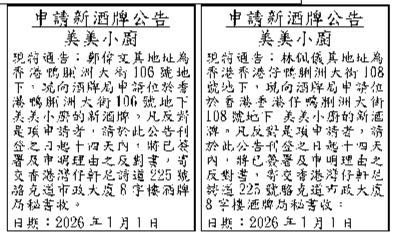 申請新酒牌公告
美美小廚
現特通告：鄭偉文其地址為
香港鴨脷洲大街106號地
下，現向酒牌局申請位於香
港鴨脷洲大街106號地下
美美小廚的新酒牌。凡反對
是項申請者，請於此公告刊
登之日起十四天內，將已簽
署及申明理由之反對書，寄
交香港灣仔軒尼詩道225號
駱克道市政大廈8字樓酒牌
局秘書收。
日期：2026年1月1日
申請新酒牌公告
美美小廚
現特通告：林佩儀其地址為
香港香港仔鴨脷洲大街108
號地下，現向酒牌局申請位
於香港香港仔鴨脷洲大街
108號地下 美美小廚的新酒
牌。凡反對是項申請者，請
於此公告刊登之日起十四天
內，將已簽署及申明理由之
反對書，寄交香港灣仔軒尼
詩道225號駱克道市政大廈
8字樓酒牌局秘書收。
日期：2026年1月1日